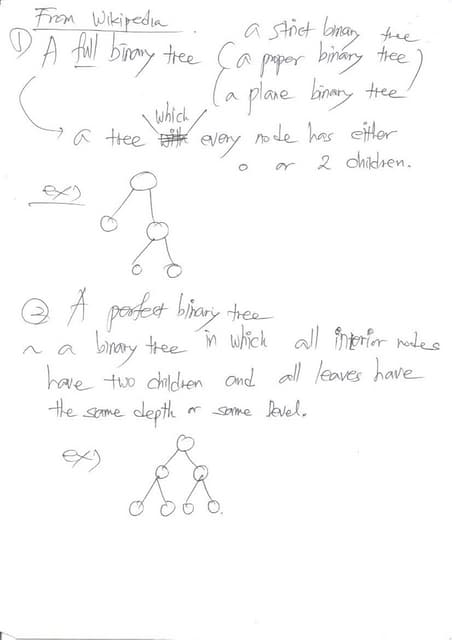 From Wikipedia
① A full binary tree
a strict binary tree
(a proper binary tree)
(a plane binary tree)
which
a tree with every node has either
0 or 2 children.
ex)
② A perfect binary tree
~ a binary tree in which all interior nodes
have two children and all leaves have
the same depth or same level.
ex)